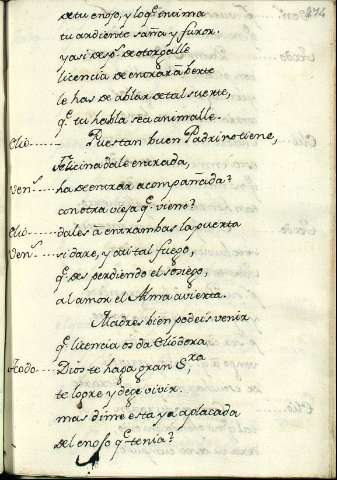 474
de tu enojo, y loq.e enima
tu ardiente saña y furor.
y asi de s.r de otorgalle
licencia de entrar a berte
le has de ablar de tal suerte,
q.e tu habla sea animalle.
Clio------ Pues tan buen Padrino tiene,
Felicina dale entrada,
Ven.s----- ha de entrar acompañada?
con otra vieja q.e viene?
Clio----- dales a entrambas la puerta
Ven.s---- si dare, y ai tal fuego,
q.e desperdiendo el sosiego,
al amor el Alma avierta.
Madres bien podeis venir
q.e licencia os da Cliodora
Todo----- Dios te haga gran S.ra
te logre y dege vivir.
mas dime esta ya aplacada
del enojo q.e tenia?